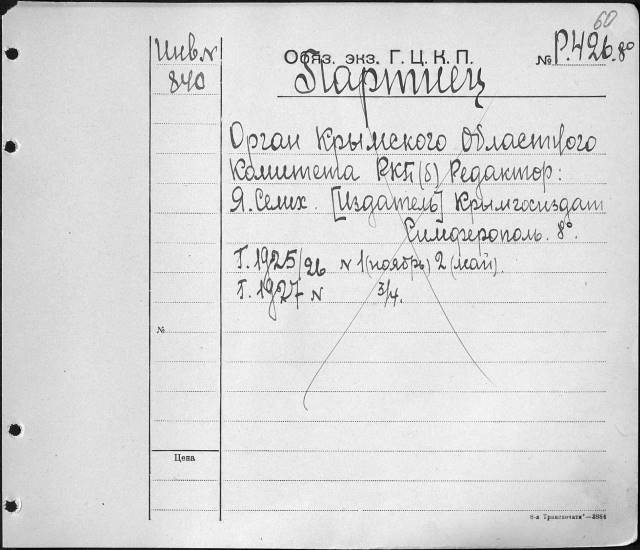 60
Инв. №
840
Обяз. экз. Г. Ц. К. П.
№ Р.426.8°
Партиец
Орган Крымского Областного
Комитета РКП(б) Редактор:
Я. Селих. [Издатель] Крымгосиздат
Симферополь. 8°.
Г. 1925/26 N 1 (ноябрь) 2 (май).
Г. 1927 N 3/4.
№
Цена
8-я Транспечати"—3884